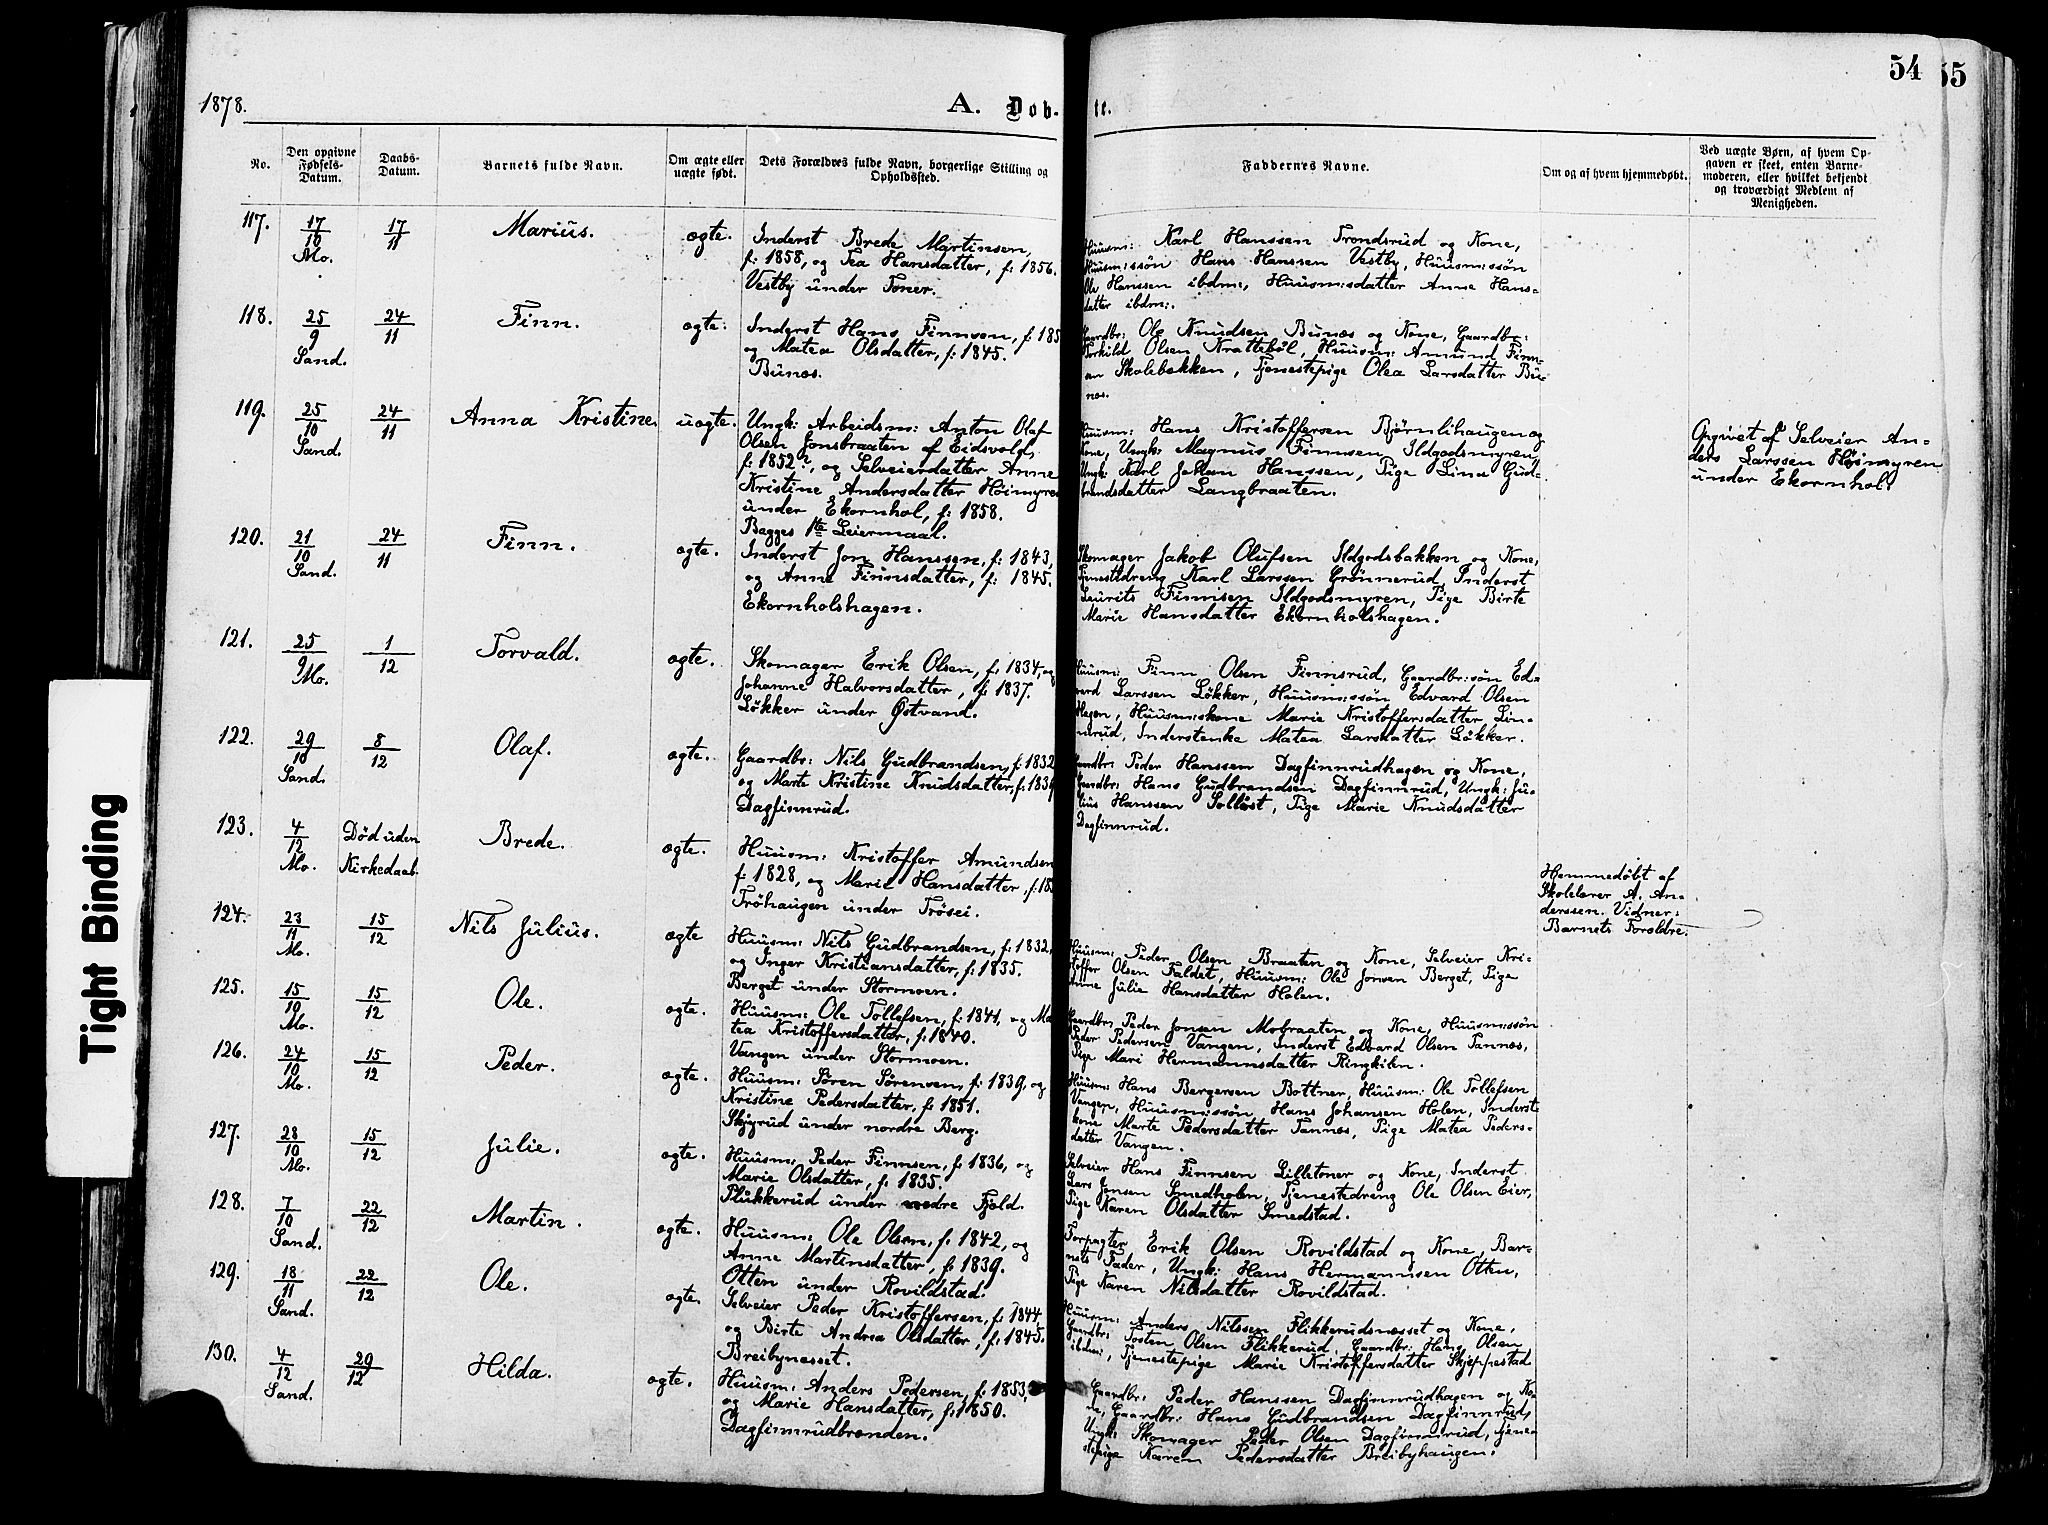 54
55
1878.
A. Døb-
te.
No.
Den opgivne
Fødsels-
Datum.
Daabs-
Datum.
Barnets fulde Navn.
Om ægte eller
uægte født.
Dets Forældres fulde Navn, borgerlige Stilling og
Opholdssted.
Faddernes Navne.
Om og af hvem hjemmedøbt.
Ved uægte Børn, af hvem Op-
gaven er skeet, enten Barne-
moderen, eller hvilket bekjendt
og troværdigt Medlem af
Menigheden.
117.
17/10
Mo.
17/11
Marius.
ægte.
Inderst Brede Martinsen,
f: 1858, og Tea Hansdatter, f: 1856.
Vestby under Toner.
Huusm: Karl Hanssen Trondsrud og Kone,
Huusm:søn Hans Hanssen Vestby, Huusm:søn
Ole Hanssen ibdm:, Huusm:sdatter Anne Hans-
datter ibdm:.
118.
25/9
Sand.
24/11
Finn.
ægte:
Inderst Hans Finnsen, f: 185
og Matea Olsdatter, f: 1845.
Bunæs.
Gaardbr: Ole Knudsen Bunæs og Kone, Gaardbr:
Torkild Olsen Krattebøl, Huusm: Amund Finn-
sen Skolebakken, Tjenestepige Olea Larsdatter Bu-
næs.
119.
25/10
Sand.
24/11
Anna Kristine.
uægte.
Ungk: Arbeidsm: Anton Olaf
Olsen Jonsbraaten af Eidsvold,
f: 1852?, og Selveierdatter Anne
Kristine Andersdatter Höimyren
under Ekornhol, f: 1858.
Begges 1te Leiermaal.
Huusm: Hans Kristoffersen Björnlihaugen og
Kone, Ungk: Magnus Finnsen Ildgodsmyren,
Ungk: Karl Johan Hanssen, Pige Lina Gud-
brandsdatter Langbraaten.
Opgivet af Selveier An-
ders Larssen Höimyren
under Ekornhol.
120.
21/10
Sand.
24/11
Finn.
ægte.
Inderst Jon Hanssen, f: 1843,
og Anne Finnsdatter, f: 1845.
Ekornholshagen.
Skomager Jakob Olufsen Ildgodsbakken og Kone,
Tjenestdreng Karl Larssen Grönnerud, Inderst
Laurits Finnsen Ildgodsmyren, Pige Birte
Marie Hansdatter Ekornholshagen.
121.
25/9
Mo.
1/12
Torvald.
ægte.
Skomager Erik Olsen, f: 1834, og
Johanne Halvorsdatter, f: 1837.
Løkker under Østvand.
Huusm: Finn Olsen Finnsrud, Gaardbr:søn Ed-
vard Larssen Løkker, Huusm:søn Edvard Olsen
Hagen, Huusm:skone Marie Kristoffersdatter Lin-
nerud, Inderstenke Matea Larsdatter Løkker.
122.
29/10
Sand.
8/12
Olaf.
ægte.
Gaardbr: Nils Gudbrandsen, f: 1832
og Marte Kristine Knudsdatter, f: 1839
Dagfinnrud.
Gaardbr: Peder Hanssen Dagfinnrudhagen og Kone,
Gaardbr: Hans Gudbrandsen Dagfinnrud, Ungk: Ju-
lius Hanssen Solløst, Pige Marie Knudsdatter
Dagfinnrud.
123.
4/12
Mo.
Død uden
Kirkedaab.
Brede.
ægte.
Huusm: Kristoffer Amundsen
f: 1828, og Marie Hansdatter, f: 183
Tröhaugen under Trösei.
Hjemmedöbt af
Skolelærer A. An-
derssen. Vidner:
Barnets Forældre.
124.
23/11
Mo.
15/12
Nils Julius.
ægte
Huusm: Nils Gudbrandsen, f: 1832,
og Inger Kristiansdatter, f: 1835.
Berget under Stormoen.
Huusm: Peder Olsen Braaten og Kone, Selveier Kri-
stoffer Olsen Faldet, Huusm: Ole Jonsen Berget, Pige
Anne Julie Hansdatter Holen.
125.
15/10
Mo.
15/12
Ole.
ægte.
Huusm: Ole Tollefsen, f: 1841, og Ma-
tea Kristoffersdatter, f: 1840.
Vangen under Stormoen.
Gaardbr: Peder Jonsen Mobraaten og Kone, Huusm:søn
Peder Pedersen Vangen, Inderst Edvard Olsen Tannæs,
Pige Mari Hermannsdatter Ringkilen.
126.
24/10
Mo.
15/12
Peder.
ægte.
Huusm: Sören Sörensen, f: 1839, og
Kristine Pedersdatter, f: 1851.
Skjyrud under nordre Berg.
Huusm: Hans Bergersen Bottner, Huusm: Ole Tollefsen
Vangen, Huusm:søn Hans Johansen Holen, Inderst-
kone Marte Pedersdatter Tannæs, Pige Matea Peders-
datter Vangen.
127.
28/10
Mo.
15/12
Julie.
ægte.
Huusm: Peder Finnsen, f: 1836, og
Marie Olsdatter, f: 1835.
Plukkerud under nedre Fjeld.
Selveier Hans Finnsen Lilletoner og Kone, Inderst
Lars Jensen Smedholen, Tjenestedreng Ole Olsen Eier,
Pige Karen Olsdatter Smedstad.
128.
7/10
Sand.
22/12
Martin.
ægte.
Huusm: Ole Olsen, f: 1842, og
Anne Martinsdatter, f: 1839.
Otten under Rovildstad.
Forpagter Erik Olsen Rovildstad og Kone, Bar-
nets Fader, Ungk: Hans Hermannsen Otten,
Pige Karen Nilsdatter Rovildstad.
129.
18/11
Sand.
22/12
Ole.
ægte.
Selveier Peder Kristoffersen, f: 1844,
og Birte Andrea Olsdatter, f: 1845.
Breibynæsset.
Huusm: Anders Nilssen Flikkerudsnæsset og Kone,
Gaardbr: Tosten Olsen Flikkerud, Gaardbr: Hans Olsen
ibdm:, Tjenestepige Marie Kristoffersdatter Skjeppestad
130.
4/12
Sand.
29/12
Hilda.
ægte.
Huusm: Anders Pedersen, f: 1853,
og Marie Hansdatter, f: 1850.
Dagfinnrudbrænden.
Gaardbr: Peder Hanssen Dagfinnrudhagen og Ko-
ne, Gaardbr: Hans Gudbrandsen Dagfinnrud,
Ungk: Skomager Peder Olsen Dagfinnrud, Tjene-
stepige Karen Pedersdatter Breibyhaugen.
Tight Binding